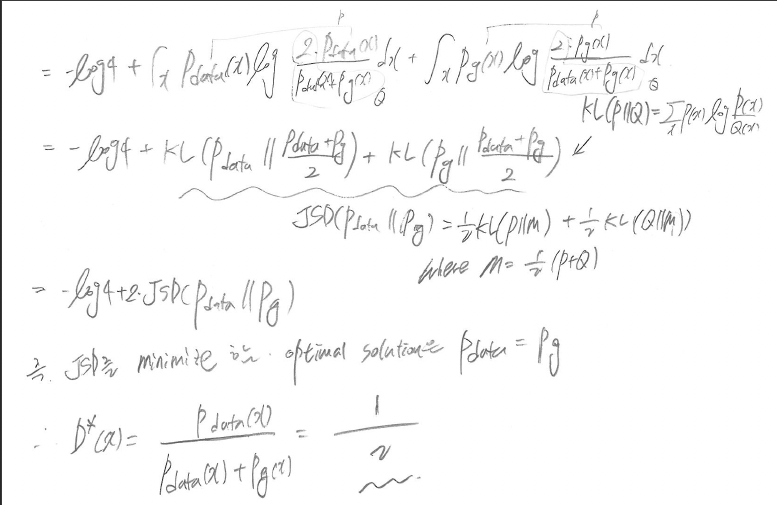 P P
= -log4 + ∫x Pdata(x) log 2·Pdata(x) / Pdata(x)+Pg(x) dx + ∫x Pg(x) log 2·Pg(x) / Pdata(x)+Pg(x) dx
Q Q
KL(P||Q) = Σx P(x) log P(x)/Q(x)
= -log4 + KL(Pdata || Pdata+Pg / 2) + KL(Pg || Pdata+Pg / 2) ↙
JSD(Pdata || Pg) = 1/2 KL(P||M) + 1/2 KL(Q||M))
where M = 1/2 (P+Q)
= -log4+2·JSD(Pdata || Pg)
즉, JSD를 minimize 하는 optimal solution은 Pdata = Pg
∴ D*(x) = Pdata(x) / Pdata(x) + Pg(x) = 1 / 2